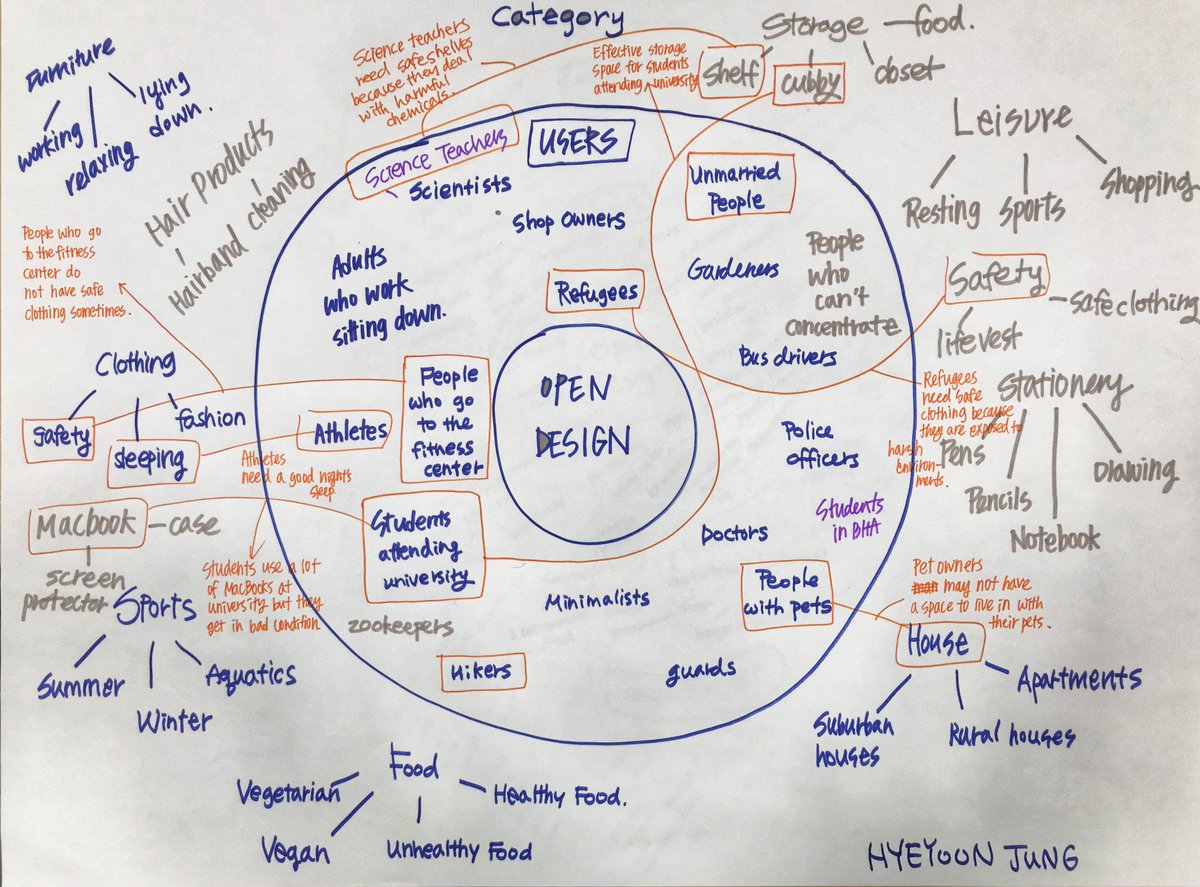 Category
Furniture
working
relaxing
lying
down.
Hair Products
Hairband cleaning
Science teachers
need safe shelves
because they deal
with harmful
chemicals.
Effective storage
space for students
attending university
Storage — food.
Shelf
cubby
closet
Leisure
Resting
Sports
Shopping
Safety
safe clothing
life vest
Refugees
need safe
clothing because
they are exposed to
harsh
environ-
ments.
Stationery
Pens
Pencils
Notebook
Drawing
People who go
to the fitness
center do
not have safe
clothing sometimes.
Clothing
Safety
Sleeping
fashion
Athletes
need a good nights
sleep
Macbook — case
screen
protector
Students use a lot
of MacBooks at
university but they
get in bad condition.
Sports
Summer
Winter
Aquatics
USERS
Science Teachers
Scientists
Shop Owners
Unmarried
People
Adults
who work
sitting down.
Refugees
Gardeners
People
who
can't
concentrate
Bus drivers
People
who go
to the
fitness
center
Athletes
OPEN
DESIGN
Police
officers
Students
in BHA
Students
attending
university
Doctors
People
with pets
Minimalists
zookeepers
Hikers
guards
Pet owners
may not have
a space to live in with
their pets.
House
Suburban
houses
Rural houses
Apartments
Food
Vegetarian
Vegan
Unhealthy Food
Healthy Food.
HYEYOON JUNG